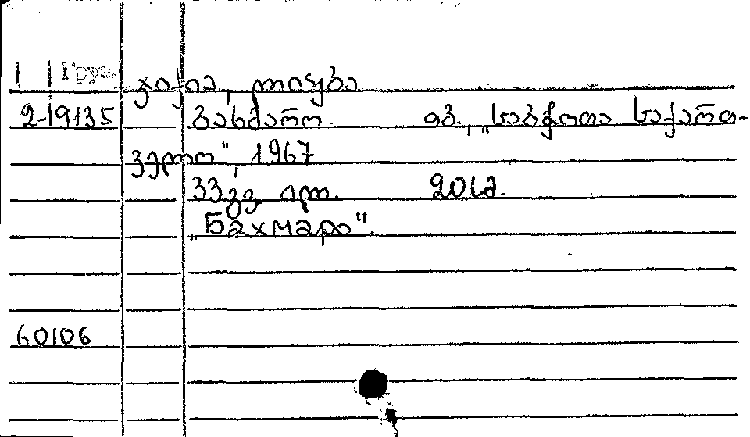 Груз. ჯიქია, ლიუბა
2-19135 ბახმარო. თბ., „საბჭოთა საქართ-
ველო", 1967
33გვ. ილ. 20კ.
„Бахмаро".
60106